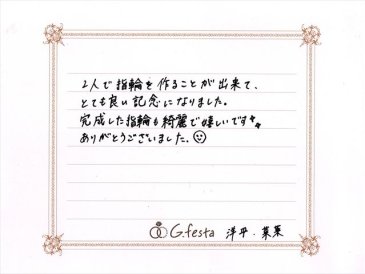 2人で指輪を作ることが出来て、
とても良い記念になりました。
完成した指輪も綺麗で嬉しいです
ありがとうございました。
G.festa 洋平・菜菜